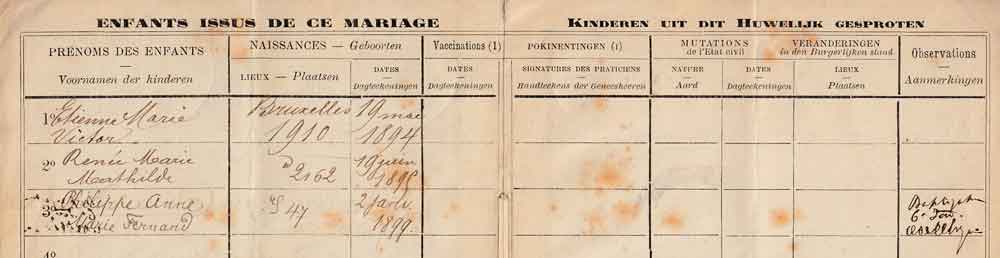 ENFANTS ISSUS DE CE MARIAGE
KINDEREN UIT DIT HUWELIJK GESPROTEN
PRÉNOMS DES ENFANTS
—
Voornamen der kinderen
NAISSANCES — Geboorten
LIEUX — Plaatsen
DATES
—
Dagteekeningen
Vaccinations (1)
DATES
—
Dagteekeningen
POKINENTINGEN (1)
SIGNATURES DES PRATICIENS
—
Handteekens der Geneesheeren
MUTATIONS
de l'Etat civil
NATURE
—
Aard
DATES
—
Dagteekeningen
VERANDERINGEN
in den Burgerlijken stand
LIEUX
—
Plaatsen
Observations
—
Aanmerkingen
1º Etienne Marie
Victor
Bruxelles
1910
19 mai
1894
2º Renée Marie
Mathilde
2162
19 juin
1895
3º Philippe Anne
Marie Fernand
47
2
1899
4º